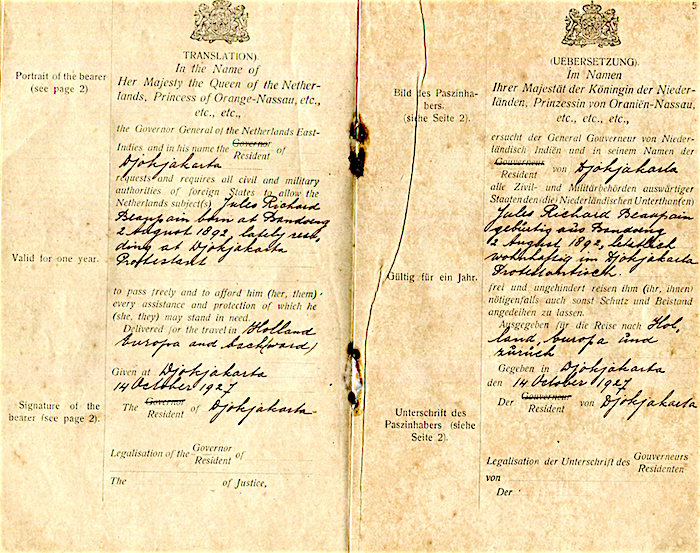 TRANSLATION).
In the Name of
Her Majesty the Queen of the Nether-
lands, Princess of Orange-Nassau, etc.,
etc., etc.,
Portrait of the bearer
(see page 2)
the Governor General of the Netherlands East-
Indies and in his name the Governor of
Resident
Djokjakarta
requests and requires all civil and military
authorities of foreign States to allow the
Netherlands subject(s) Jules Richard
Beaupain born at Bandoeng
2 August 1892, lately resi-
ding at Djokjakarta
Valid for one year.
Protestant
to pass freely and to afford him (her, them)
every assistance and protection of which he
(she, they) may stand in need.
Delivered for the travel in Holland
Europa and back(ward)
Given at Djokjakarta
14 October 1927
Signature of the
bearer (see page 2).
The Governor of Djokjakarta
Resident
Legalisation of the Governor of
Resident
The of Justice,
5
(UEBERSETZUNG).
Im Namen
Ihrer Majestät der Königin der Nieder-
länden, Prinzessin von Oraniën-Nassau,
etc., etc.,
Bild des Paszinha-
bers.
(siehe Seite 2).
ersucht der General Gouverneur von Nieder-
ländisch Indiën und in seinem Namen der
Gouverneur von Djokjakarta
Resident
alle Zivil- und Militärbehörden auswärtiger
Staaten den (die) Niederländischen Unterthan(en)
Jules Richard Beaupain
gebürtig aus Bandoeng
2 August 1892, letztlich
wohnhaftig in Djokjakarta
Gültig für ein Jahr.
Protestantisch.
frei und ungehindert reisen ihm (ihr, ihnen)
nötigenfalls auch sonst Schutz und Beistand
angedeihen zu lassen.
Ausgegeben für die Reise nach Hol,
land, Europa und
zürück
Gegeben in Djokjakarta
den 14 October 1927
Der Gouverneur von Djokjakarta
Resident
Unterschrift des
Paszinhabers (siehe
Seite 2).
Legalisation der Unterschrift des Gouverneurs
Residenten
von
Der